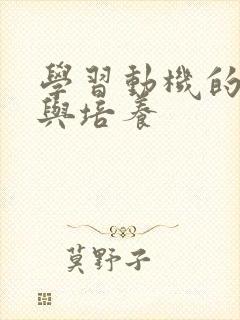 學習動機的
與培養
莫野子